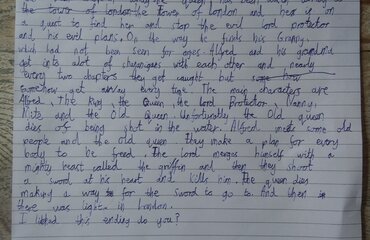 the tower of london. the tower of london and he is on
a quest to find her and stop the evil lord protector
and his evil plans. On the way he finds his Granny
which had not been seen for ages. Alfred and his grandma
get into alot of shenanigans with each other and nearly
every two chapters they get caught but some how
somehow get away every time. The main characters are
Alfred, The King, the Queen, the Lord Protector, Nanny,
Mite, and the Old Queen. Unfortunatly the Old queen
dies of being shot in the water. Alfred meets some old
people and the old queen they make a plan for every
body to be freed. The lord merges himself with a
mighty beast called the griffin and then they shoot
a sword at his heart and kills him. The queen dies
making a way for the sword to go to. And then
there was light in London.
I liked this ending do you?